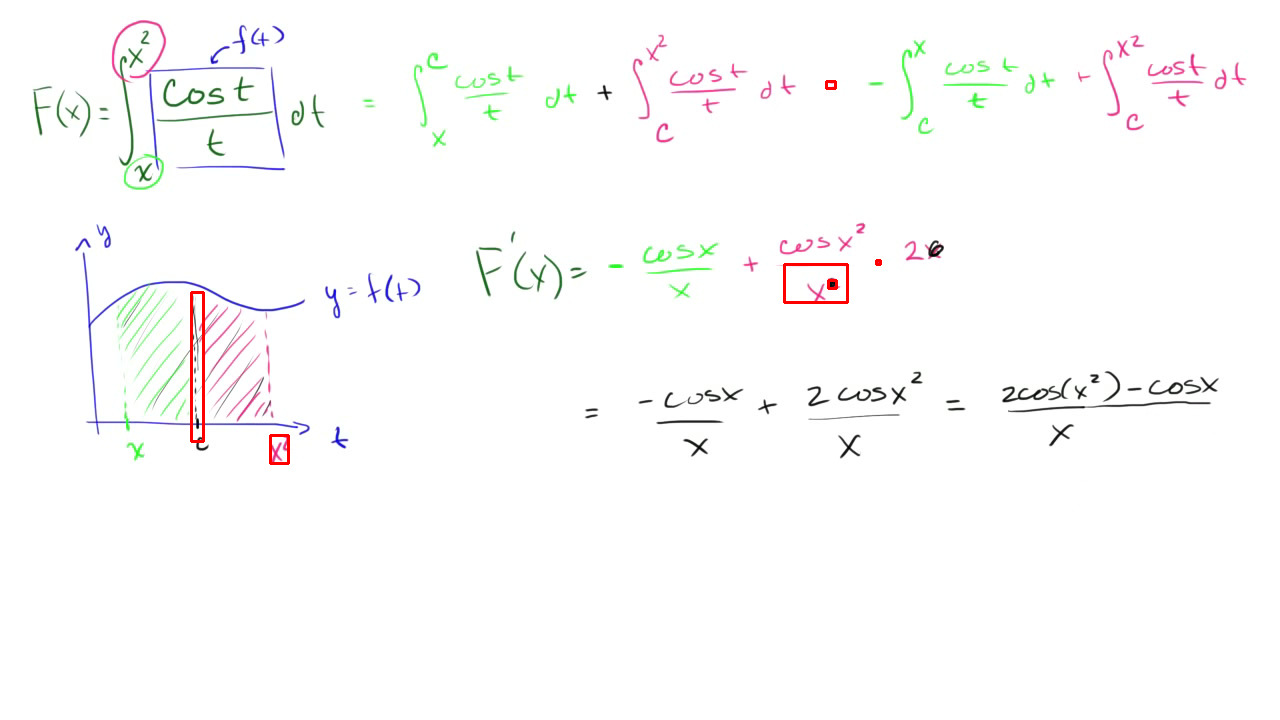 f(t)
F(x) = ∫_x^{x²} cos t / t dt = ∫_x^c cos t / t dt + ∫_c^{x²} cos t / t dt - ∫_c^x cos t / t dt + ∫_c^{x²} cos t / t dt
y
F'(x) = - cos x / x + cos x² / x · 2
y = f(t)
x c x² t
= -cos x / x + 2 cos x² / x = 2cos(x²) - cos x / x